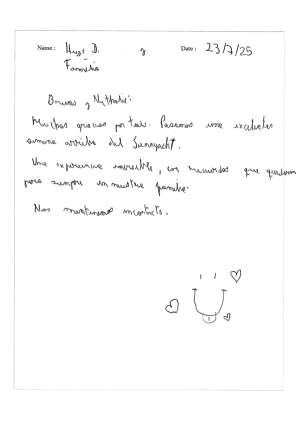 Name: Hugo D. y Date: 23/7/25
Familia
y Nathalie:
Muchas gracias por todo. Pasamos una excelente
semana arriba del Sunnyacht.
Una experiencia increíble, con recuerdos que quedaran
para siempre en nuestra familia.
Nos mantenemos in contacto.